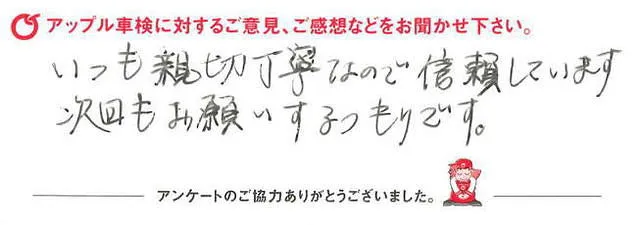 アップル車検に対するご意見、ご感想などをお聞かせ下さい。
いつも親切丁寧なので信頼しています
次回もお願いするつもりです。
アンケートのご協力ありがとうございました。